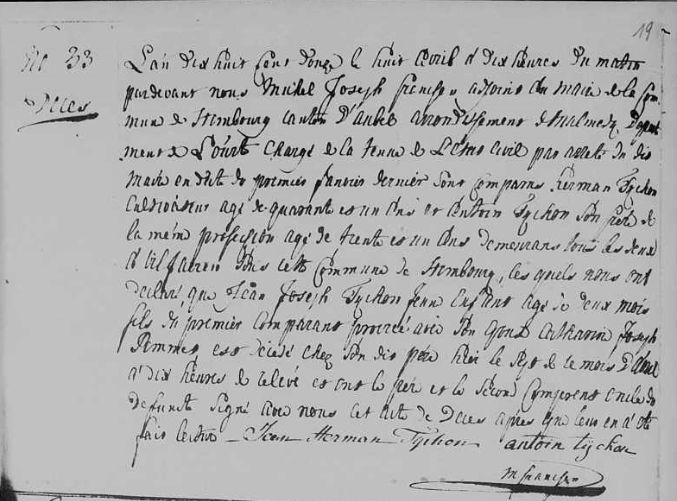 19
No 33
Deces
L'an dix huit cent douze le huit avril a dix heures du matin
pardevant nous Michel Joseph adjoint du maire de la com
mune de Hombourg canton D'aubel arrondissement de malmedy Depart
ment de L'ourt chargé de la tenue de L'état civil par arreté du dit
maire en date du premier Janvier dernier sont comparus herman Tychon
cultivateur agé de quarant et un ans et antoin Tychon son frere de
la meme profession agé de trente et un ans demeurans tous les deux
a dans cette commune de hombourg, les quels nous ont
declaré, que Jean Joseph Tychon Jeune Enfant agé de deux mois
fils du premier comparant procreé avec son Epouse catharine Joseph
est décédé chez son dit pere hier le sept de ce mois D'avril
a dix heures de relevé et ont le pere et le second comparent oncle du
defunct signé avec nous cet acte de Deces apres que leur en a été
fait lecture - Jean Herman Tychon antoin tychon